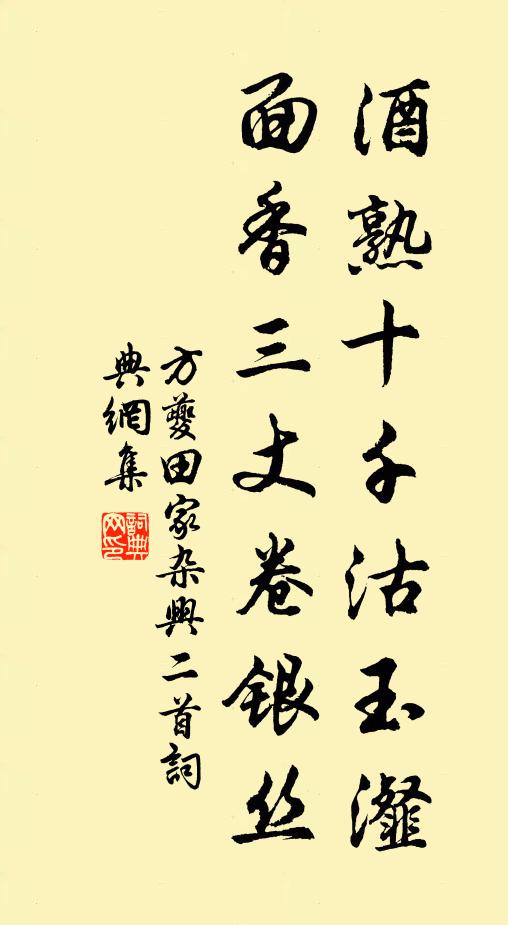 酒熟十千沽玉瀣
面香三丈卷银丝
方夔田家杂興二首詞
典網集
詞典網印